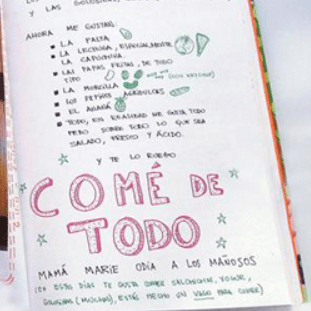 Y LAS GOLOSINAS
AHORA ME GUSTAN:
LA PALTA
LA LECHUGA, ESPECIALMENTE
LA CAPUCHINA.
LAS PAPAS FRITAS, DE TODO
TIPO (CON KETCHUP)
LA MORCILLA
LOS PEPINOS AGRIDULCES
EL ANANÁ
TODO, EN REALIDAD ME GUSTA TODO
PERO SOBRE TODO LO QUE SEA
SALADO, FRESCO Y ÁCIDO.
Y TE LO RUEGO
COMÉ DE
TODO
MAMÁ MARIE ODIA A LOS MAÑOSOS
(EN ESTOS DÍAS TE GUSTA COMER SALCHICHA, YOGUR,
GOLOSINAS (MUCHAS), ESTÁS HECHO UN VAGO PARA COMER)